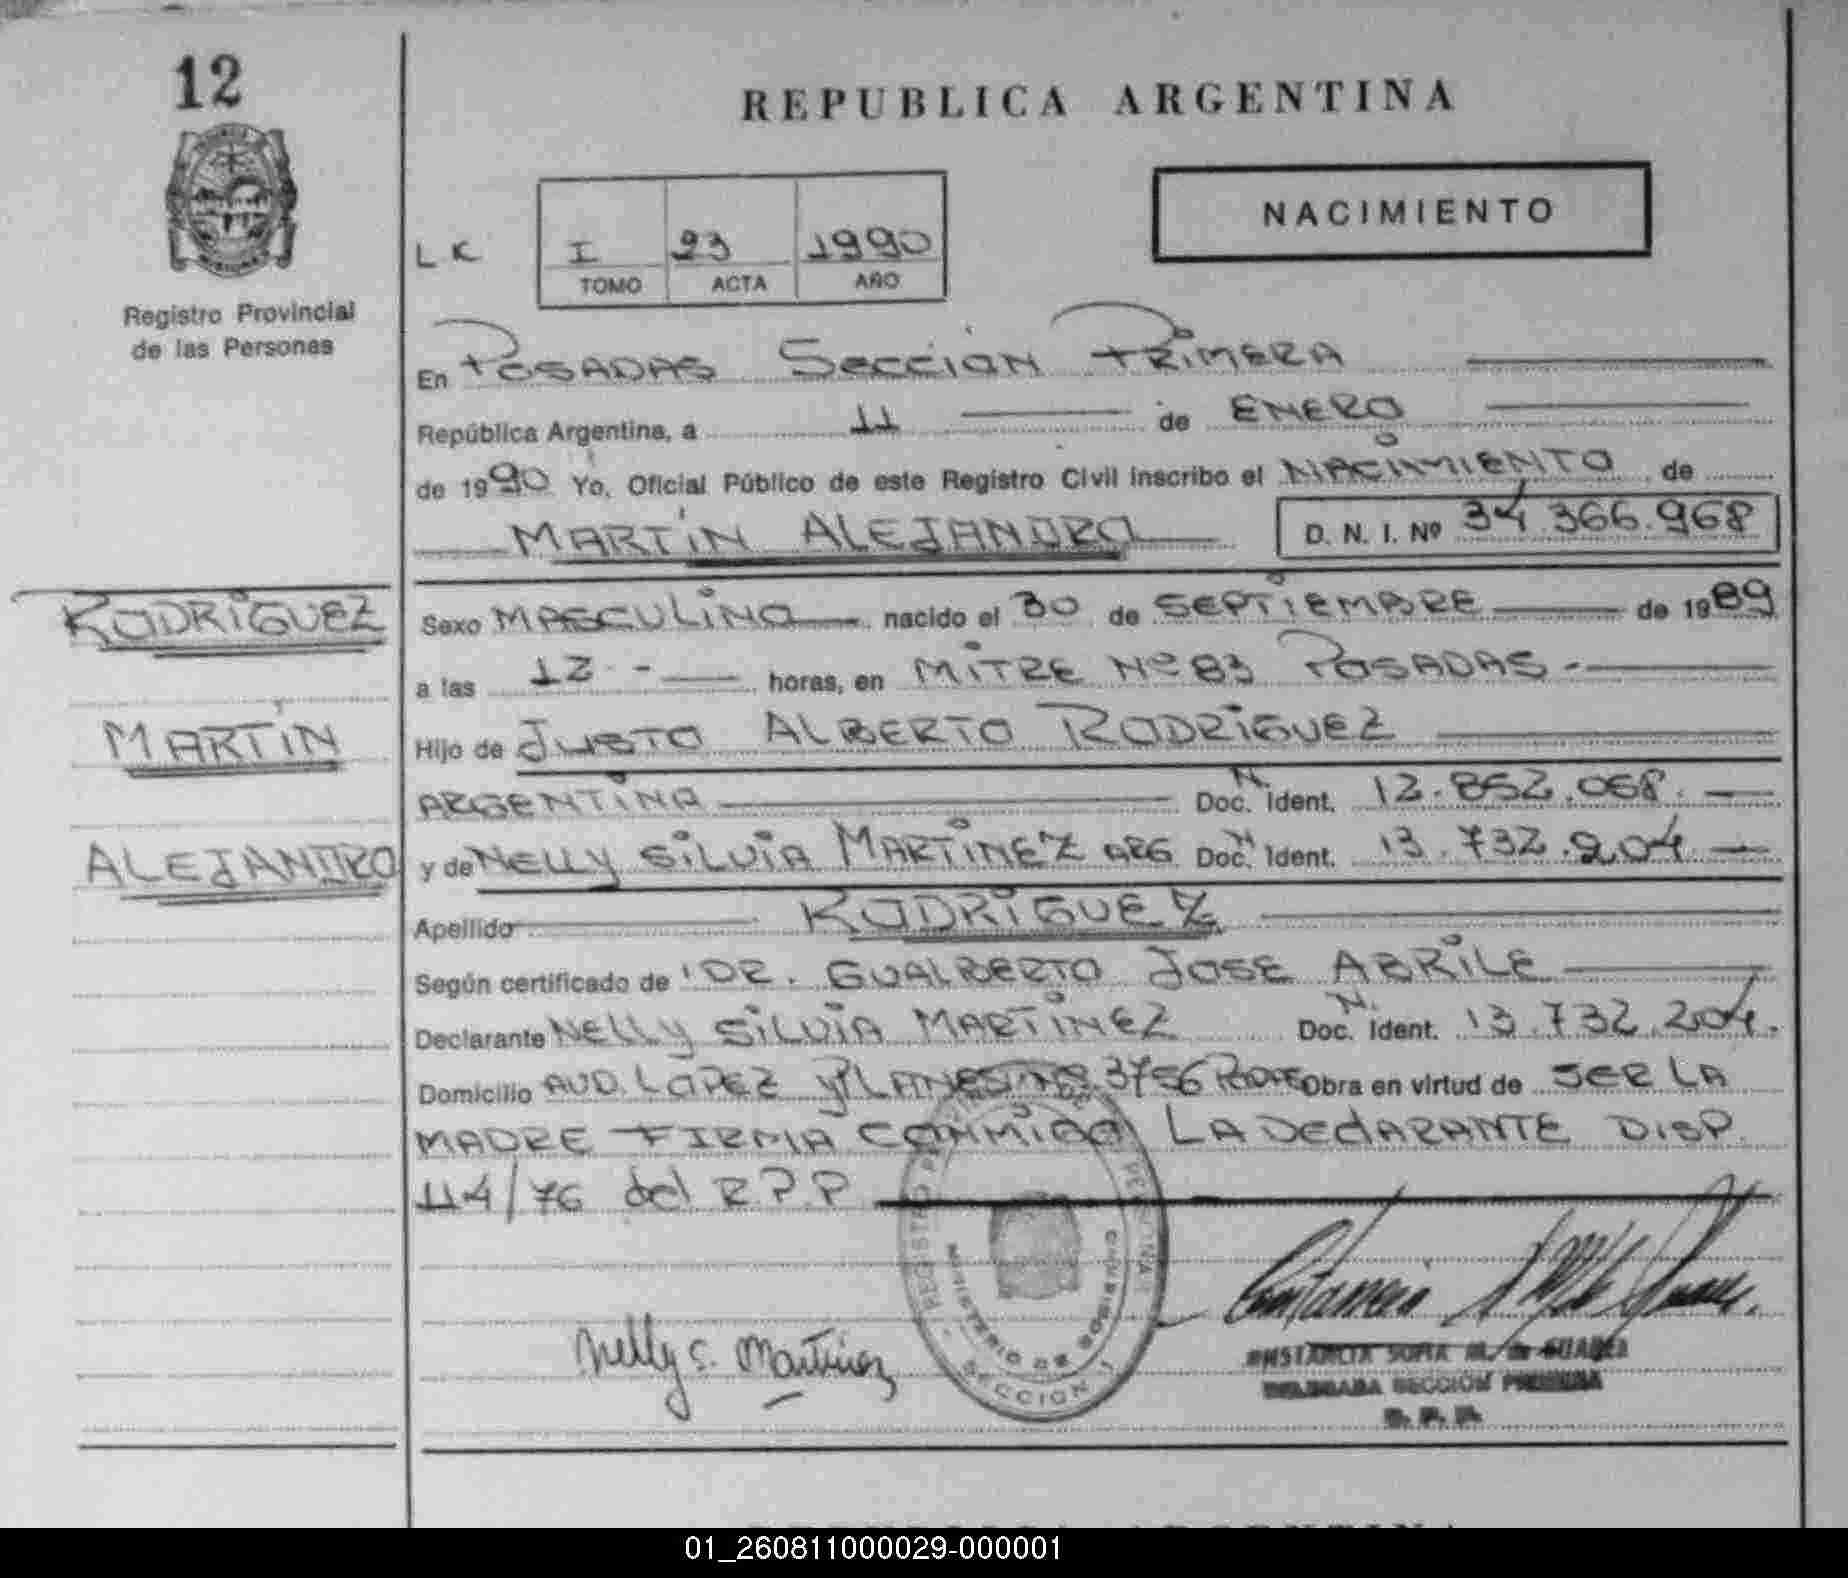 12
REPUBLICA ARGENTINA
NACIMIENTO
LK I 23 1990
TOMO ACTA AÑO
Registro Provincial
de las Personas
En POSADAS SECCION PRIMERA
República Argentina, a 11 de ENERO
de 1990 Yo, Oficial Público de este Registro Civil inscribo el NACIMIENTO de
MARTIN ALEJANDRO D. N. I. Nº 34.366.968
RODRIGUEZ
MARTIN
ALEJANDRO
Sexo MASCULINO nacido el 30 de SEPTIEMBRE de 1989
a las 12.- horas, en MITRE Nº 83 POSADAS -
Hijo de JUSTO ALBERTO RODRIGUEZ
ARGENTINA Doc. N. Ident. 12.852.058.
y de NELLY SILVIA MARTINEZ ARG Doc. N Ident. 13.732.204
Apellido RODRIGUEZ
Según certificado de DR. GUALBERTO JOSE ABRILE
Declarante NELLY SILVIA MARTINEZ Doc. N. Ident. 13.732.204.
Domicilio AVD. LOPEZ y PLANES Nº 3756 Obra en virtud de SER LA
MADRE FIRMA CONMIGO LA DECLARANTE DISP.
114/76 del R.P.P
Nelly S. Martinez
REGISTRO
MINISTERIO DE GOBIERNO
SECCION 1
SOFIA M. de
DELEGADA SECCION PRIMERA
R. P. P.
REPUBLICA ARGENTINA
01_260811000029-000001